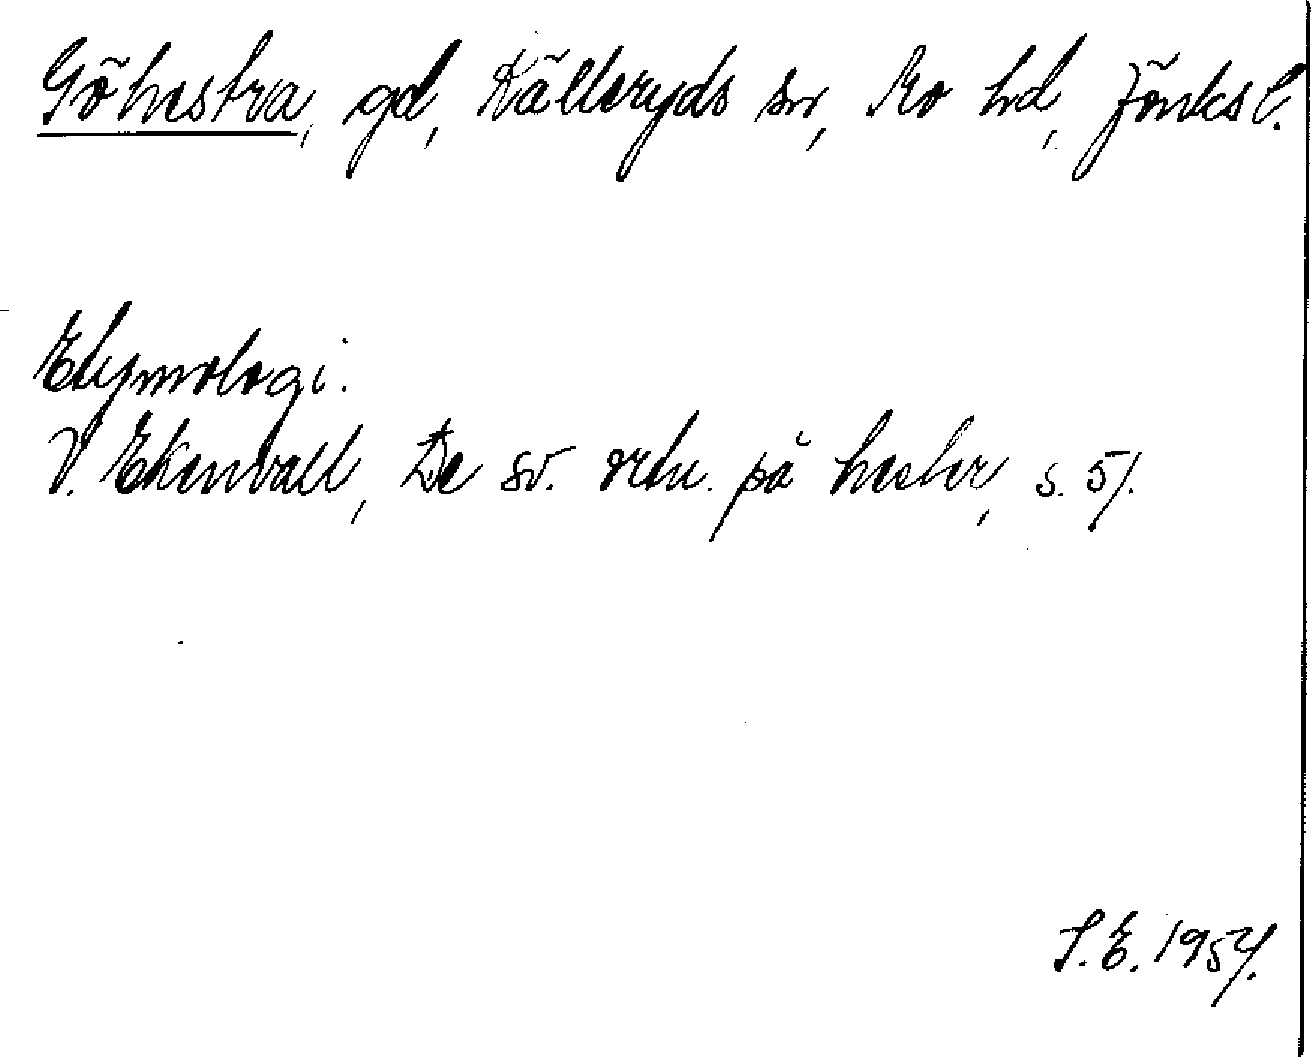 Göhestra, gd, Källeryds sn, Mo hd, Jönks l.
Etymologi.
V. Ekenvall, De sv. ortn. på hester, s. 51.
S. E. 1957.